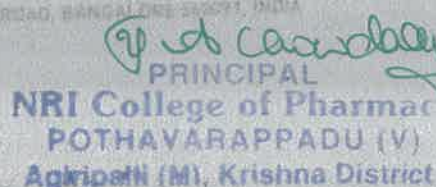 ROAD, BANGALORE 560091, INDIA
PRINCIPAL
NRI College of Pharmac
POTHAVARAPPADU (V)
Agiripalli (M), Krishna District